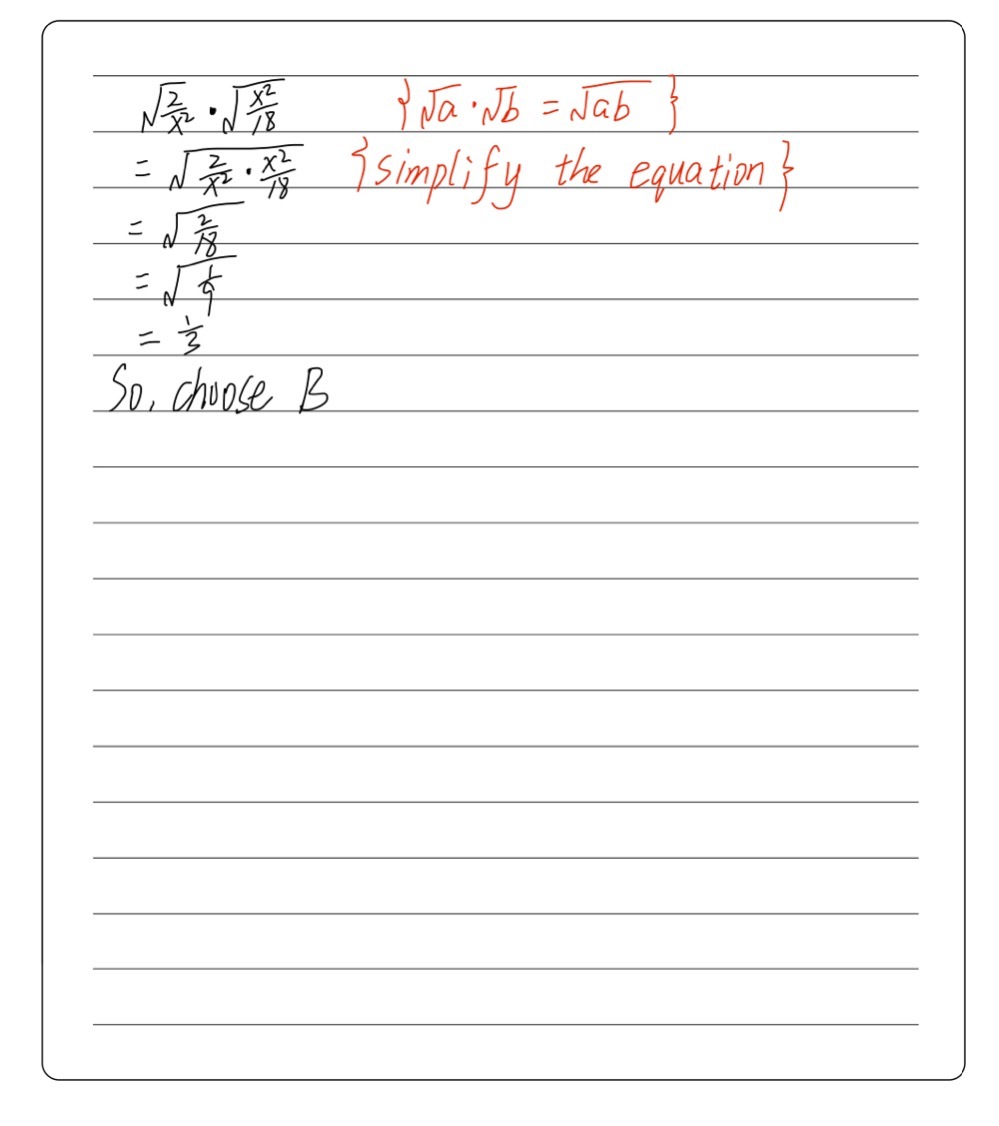 √(2/x²) · √(x²/18) {√a · √b = √ab}
= √(2/x² · x²/18) {simplify the equation}
= √(2/18)
= √(1/9)
= 1/3
So, choose B